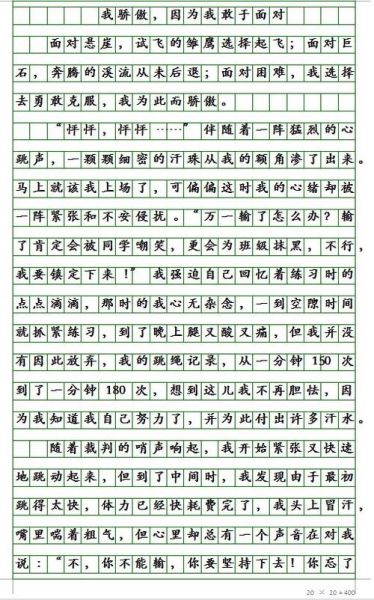 我骄傲，因为我敢于面对
面对悬崖，试飞的雏鹰选择起飞；面对巨
石，奔腾的溪流从未后退；面对困难，我选择
去勇敢克服，我为此而骄傲。
“怦怦，怦怦……”伴随着一阵猛烈的心
跳声，一颗颗细密的汗珠从我的额角渗了出来。
马上就该我上场了，可偏偏这时我的心绪却被
一阵紧张和不安侵扰。“万一输了怎么办？输
了肯定会被同学嘲笑，更会为班级抹黑，不行，
我要镇定下来！”我强迫自己回忆着练习时的
点点滴滴，那时的我心无杂念，一到空隙时间
就抓紧练习，到了晚上腿又酸又痛，但我并没
有因此放弃，我的跳绳记录，从一分钟 150 次
到了一分钟 180 次，想到这儿我不再胆怯，因
为我知道我自己努力了，并为此付出许多汗水。
随着裁判的哨声响起，我开始紧张又快速
地跳动起来，但到了中间时，我发现由于最初
跳得太快，体力已经快耗费完了，我头上冒汗，
嘴里喘着粗气，但心里却总有一个声音在对我
说：“不，你不能输，你要坚持下去！你忘了
20 × 20 = 400